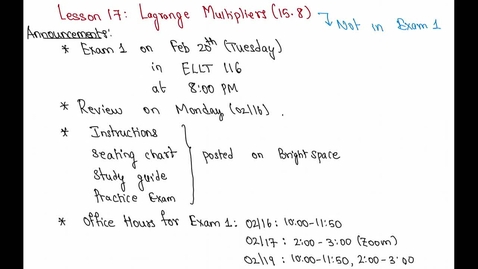 Lesson 17: Lagrange Multipliers (15.8) → Not in Exam 1
Announcements:
* Exam 1 on Feb 20th (Tuesday)
in ELLT 116
at 8:00 PM
* Review on Monday (02/16).
* Instructions
Seating chart
Study guide
Practice Exam
posted on Brightspace
* Office Hours for Exam 1: 02/16: 10:00-11:50
02/17: 2:00-3:00 (Zoom)
02/19: 10:00-11:50, 2:00-3:00